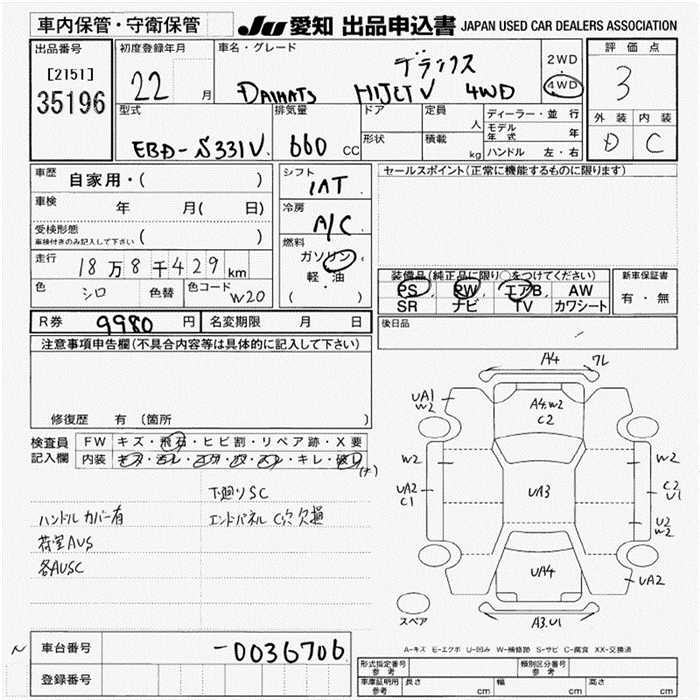 車内保管・守衛保管
JU 愛知 出品申込書 JAPAN USED CAR DEALERS ASSOCIATION
出品番号
[2151]
35196
初度登録年月
22 月
車名・グレード
デラックス
DAIHATS HIJET V 4WD
2WD
4WD
評価点
3
外装 内装
D C
型式
EBD-S331V
排気量
660 CC
ドア
形状
定員
人
積載
kg
ディーラー・並行
モデル年式 年
ハンドル 左・右
車歴
自家用・( )
車検
年 月( 日)
受検形態
車検付きのみ記入して下さい ( )
走行
18万8千429km
色
シロ
色替
色コード
W20
シフト
IAT
冷房
A/C
燃料
ガソリン
軽・油
( )
セールスポイント(正常に機能するものに限ります)
装備品(純正品に限り○をつけてください)
PS PW エアB AW
SR ナビ TV カワシート
新車保証書
有・無
後日品
R券 9980 円
名変期限 月 日
注意事項申告欄(不具合内容等は具体的に記入して下さい)
修復歴 有 (箇所 )
検査員
記入欄
FW キズ・飛石・ヒビ割・リペア跡・X要
内装 キズ・汚レ・コゲ・穴・スレ・キレ・破レ
下廻りSC
ハンドルカバー有 エンドパネルC穴欠損
荷室AUS
各AUSC
A4 ワレ
UA1
W2
A4.W2
C2
W2
W2
UA2
C1
UA3
C2
U1
U2
W2
UA4
UA2
A3.U1
スペア
A-キズ E-エクボ U-凹み W-補修跡 S-サビ C-腐食 XX-交換済
車台番号 -0036706
登録番号
形式指定番号
参考
類別区分番号
参考
車庫証明用
参考
長さ cm 幅 cm 高さ cm